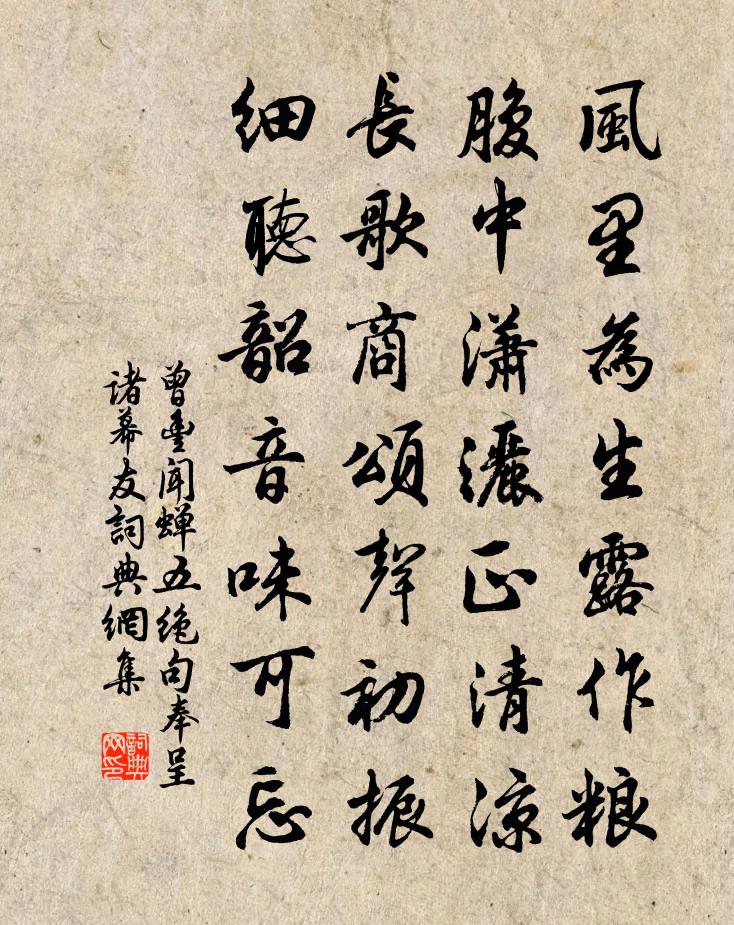 風里為生露作粮
腹中瀟灑正清涼
長歌商頌聲初振
細聽韶音味可忘
曾豊聞蟬五絶句奉呈
諸幕友詞典網集
詞典网印